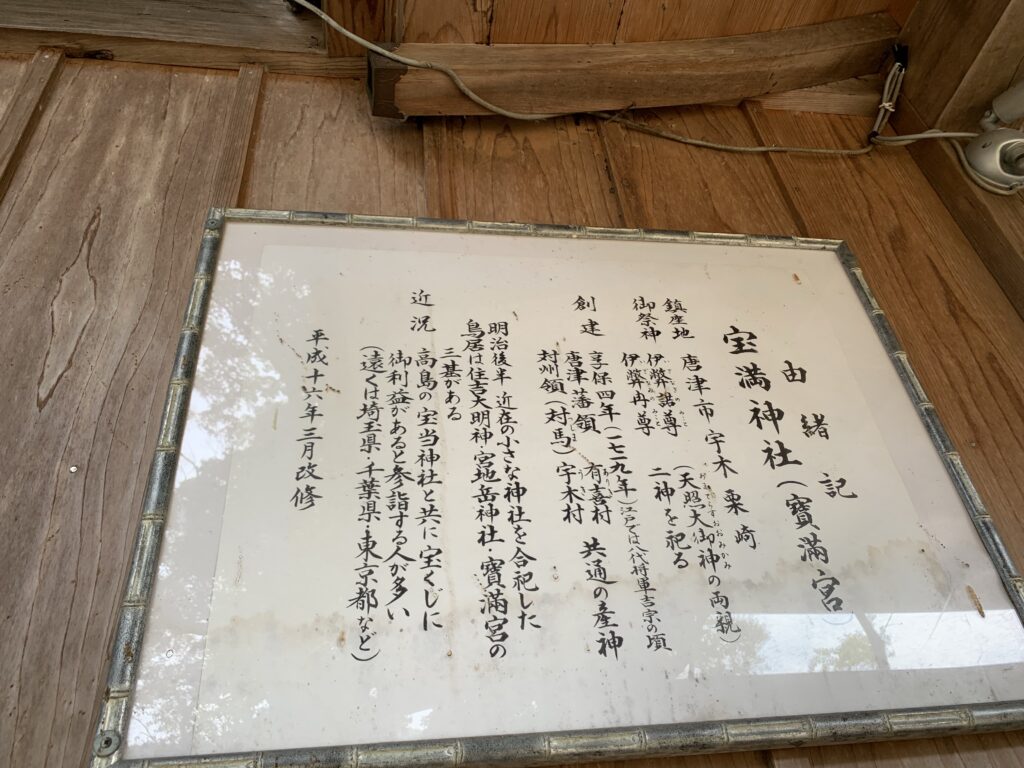 由緒記
宝満神社(寶滿宮)
鎮産地 唐津市宇木 粟崎
御祭神 伊弊諾尊 (天照大御神の両親)
おみてらすおおみかみ
伊弊冉尊 二神を祀る
創建 享保四年(一七一九年)江戸では八代将軍吉宗の頃
唐津藩領 有喜村 共通の産神
村州領(対馬) 宇木村
明治後半 近在の小さな神社を合祀した
鳥居は住吉大明神・宮地岳神社・寶滿宮の
三基がある
近況 高島の宝当神社と共に宝くじに
御利益があると参詣する人が多い
(遠くは埼玉県・千葉県・東京都など)
平成十六年三月改修